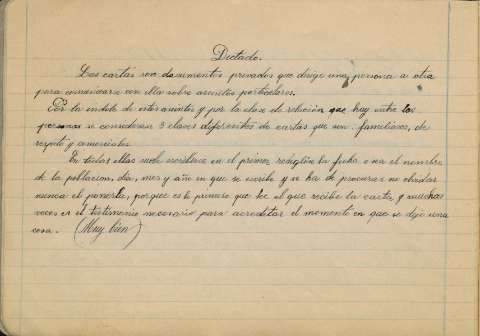 Dictado.
Las cartas son documentos privados que dirige una persona a otra
para comunicarse con ella sobre asuntos particulares.
Por la índole de estos asuntos y por la clase de relación que hay entre las
personas se consideran 3 clases diferentes de cartas que son: familiares, de
respeto y comerciales.
En todas ellas suele escribirse en el primer renglón la fecha o sea el nombre
de la poblacion, dia, mes y año en que se escribe y se ha de procurar no olvidar
nunca el ponerla, porque es lo primero que lee el que recibe la carta y muchas
veces es el testimonio necesario para acreditar el momento en que se dijo una
cosa. (Muy bien)